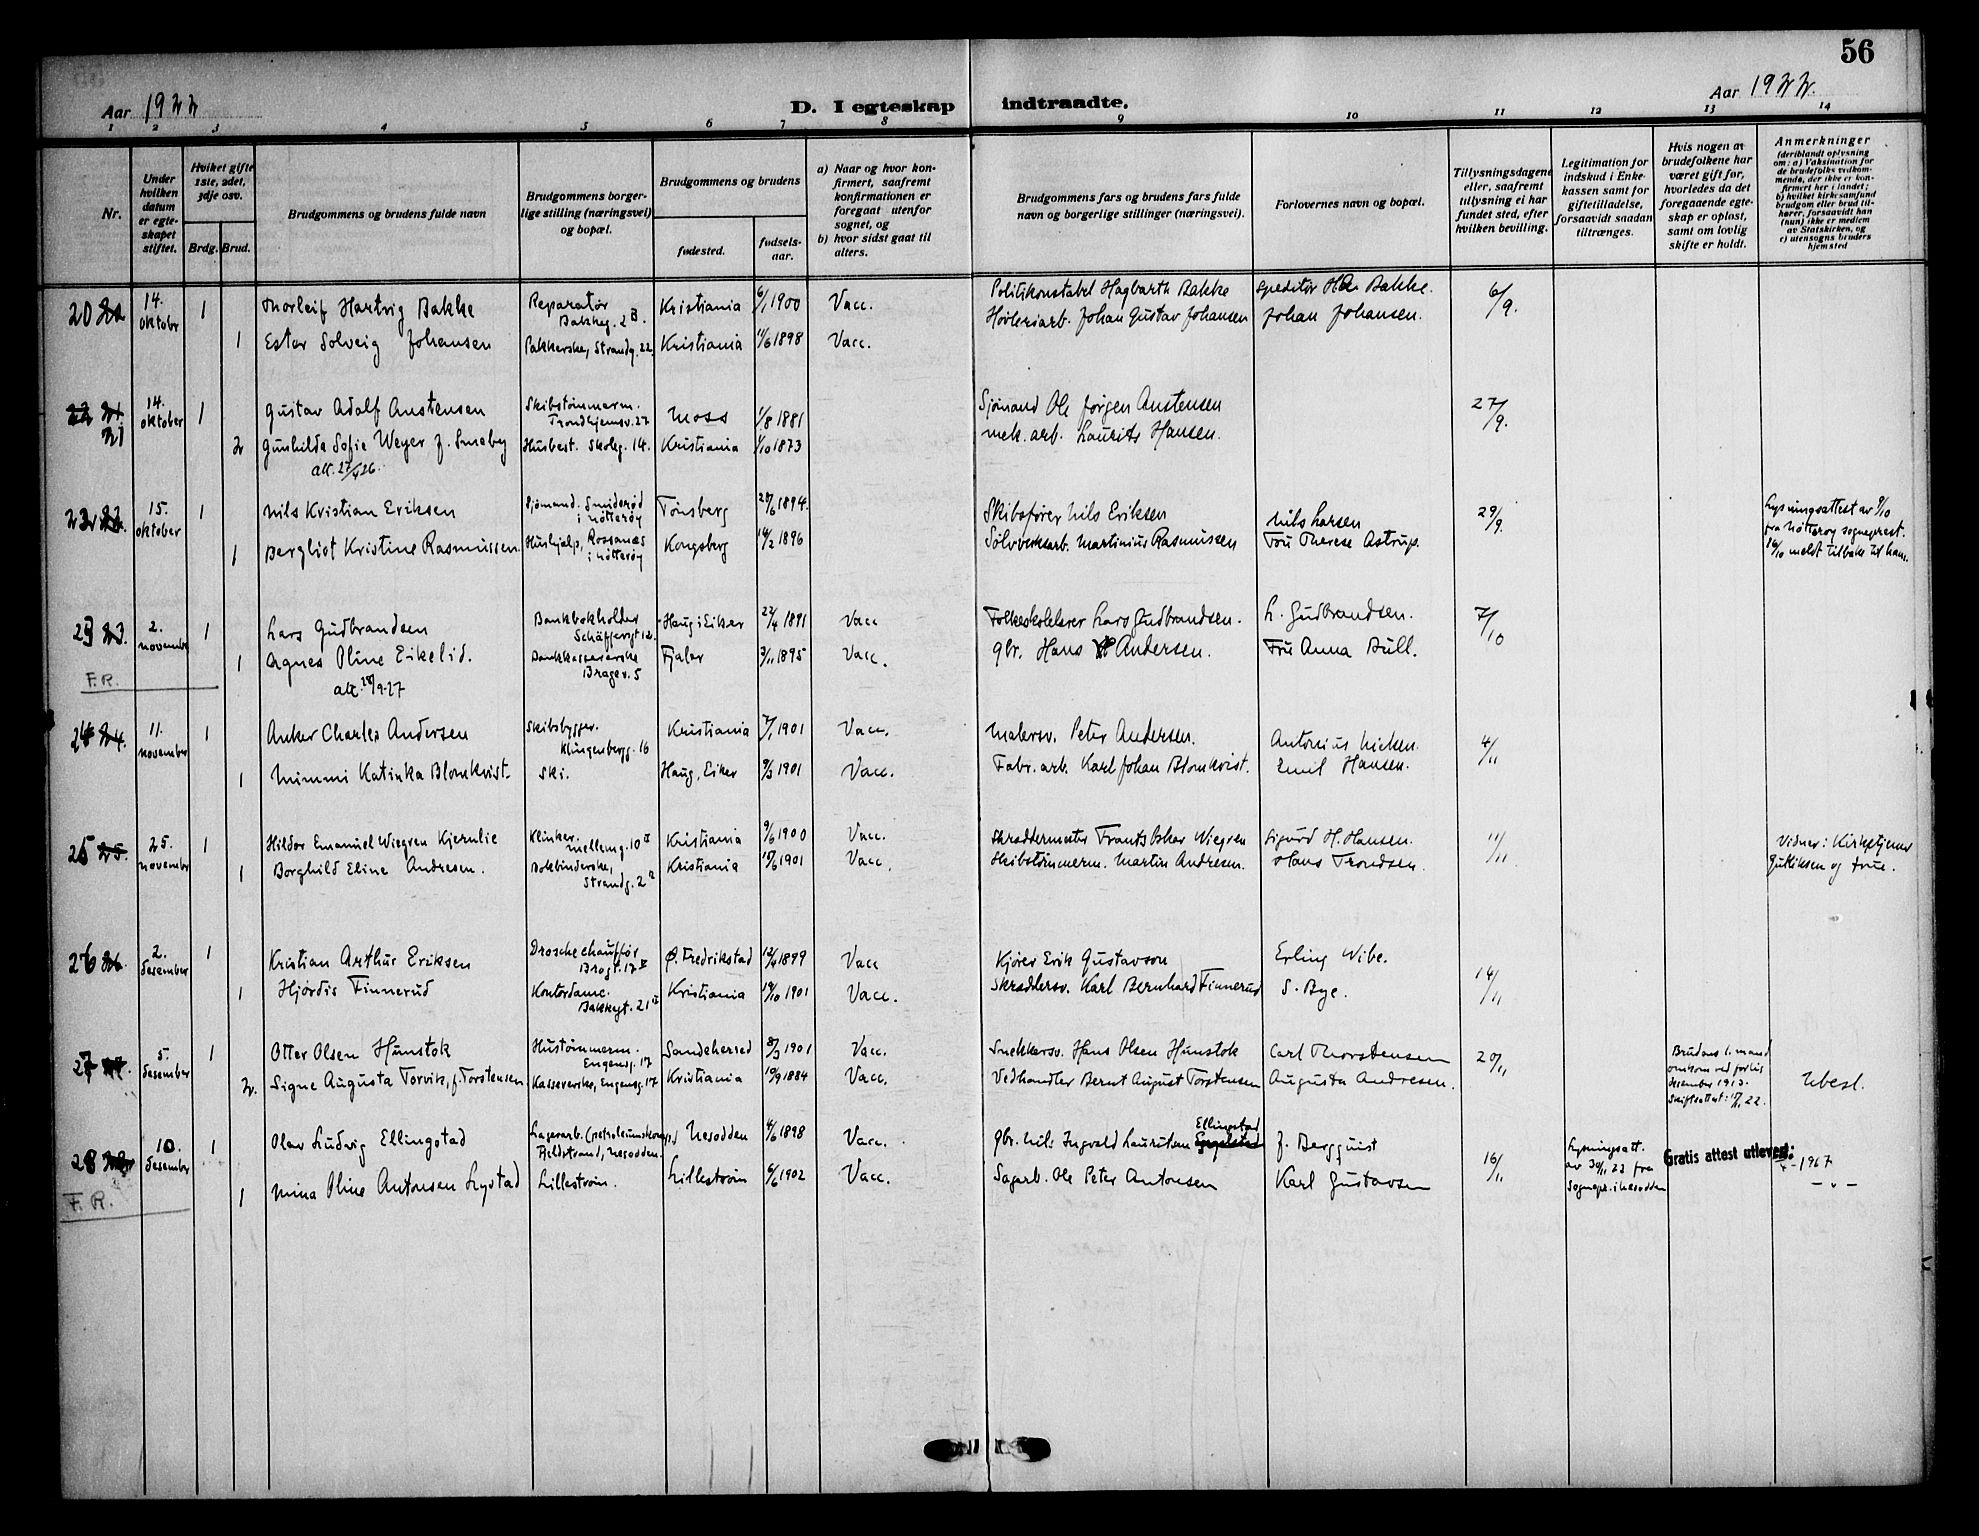 56
Aar 1922
D. I egteskap indtraadte.
Aar 1922.
1 2 3 4 5 6 7 8 9 10 11 12 13 14
Nr.
Under hvilken datum er egteskapet stiftet.
Hvilket gifte 1ste, 2det, 3dje osv.
Brdg. Brud.
Brudgommens og brudens fulde navn
Brudgommens borgerlige stilling (næringsvei) og bopæl.
Brudgommens og brudens
fødested.
fødselsaar.
a) Naar og hvor konfirmert, saafremt konfirmationen er foregaat utenfor sognet, og
b) hvor sidst gaat til alters.
Brudgommens fars og brudens fars fulde navn og borgerlige stillinger (næringsvei).
Forlovernes navn og bopæl.
Tillysningsdagene eller, saafremt tillysning ei har fundet sted, efter hvilken bevilling.
Legitimation for indskud i Enkekassen samt for giftetilladelse, forsaavidt saadan tiltrænges.
Hvis nogen av brudefolkene har været gift før, hvorledes da det foregaaende egteskap er opløst, samt om lovlig skifte er holdt.
Anmerkninger
(deriblandt oplysning om: a) Vaksination for de brudefolks vedkommende, der ikke er konfirmert her i landet; b) hvilket kirkesamfund brudgom eller brud tilhører, forsaavidt han (hun) ikke er medlem av Statskirken, og c) utensogns bruders hjemsted
20 14. oktober 1 Thorleif Hartvig Bakke Reparatør Bakkeg. 2 B. Kristiania 6/1 1900 Vacc. Politikonstabel Hagbarth Bakke Speditør Bakke. 6/9.
1 Ester Solveig Johansen Pakkerske, Strandg. 22. Kristiania 11/6 1898 Vacc. Høvleriarb. Johan Gustav Johansen Johan Johansen.
21 14. oktober 1 Gustav Adolf Anstensen Skibstømmerm. Trondhjemsv. 27 Moss 1/8 1881 Sjømand Ole Jørgen Anstensen 27/9.
2 Gunhilda Sofie Weyer f. Smeby Husbest. Skoleg. 14. Kristiania 1/10 1873 mek. arb. Laurits Hansen.
att. 27/4 26.
22 15. oktober 1 Nils Kristian Eriksen Sjømand. Smiderød i Nøtterøy Tønsberg 28/6 1894. Skibsfører Nils Eriksen Nils Larsen 29/9. Lysningsattest av 9/10 fra Nøtterøy sogneprest. 16/10 meldt tilbake til ham.
1 Bergliot Kristine Rasmussen Hushjelp, Rossanæs i Nøtterøy Kongsberg 14/2 1896 Sølvverksarb. Martinius Rasmussen Fru Therese Astrup.
23 2. november 1 Lars Gudbrandsen Bankbokholder Schäffersgt 12. Haug i Eiker 22/4 1891 Vacc Folkeskolelærer Lars Gudbrandsen. L. Gudbrandsen. 7/10
1 Agnes Oline Eikelid. Bankkassererske Bragev. 5 Fjaler 3/11 1895 Vacc. gbr. Hans Andersen. Fru Anna Bull.
F.R. att. 28/9-27
24 11. november 1 Anker Charles Andersen Skibsbygger. Klingenbergg. 16 Kristiania 7/1 1901 Vacc. Malersv. Peter Andersen. Antonius Nielsen. 4/11
1 Mimmi Katinka Blomkvist. Ski. Haug, Eiker 9/3 1901 Vacc. Fabr. arb. Karl Johan Blomkvist. Emil Hansen.
25 25. november 1 Hildor Emanuel Wiegren Kjernlie Klinker. Mellemg. 10 II Kristiania 9/6 1900 Vacc. Skræddermester Frants Oskar Wiegren Sigurd H. Hansen. 11/11 Vidner: Kirketjener Gulliksen og frue.
1 Borghild Eline Andresen. Bokbinderske, Strandg. 2 Kristiania 15/6 1901 Vacc. Skibstømmerm. Martin Andresen. Hans Trondsen.
26 2. desember 1 Kristian Arthur Eriksen Droschechauffør Brogt. 17 Ø. Fredrikstad 12/4 1899 Vacc Kjører Erik Gustavson Erling Wibe. 14/11
1 Hjørdis Finnerud Kontordame. Bakkegt. 21 Kristiania 19/10 1901 Vacc. Skræddersv. Karl Bernhard Finnerud S. Bye.
27 5. desember 1 Otter Olsen Hunstok Hustømmerm. Engensg. 17 Sandeherred 8/3 1901 Vacc. Snekkersv. Hans Olsen Hunstok Carl Thorstensen 20/11 Brudens 1. mand omkom ved forlis desember 1913. Skifteattest: 22.
2. Signe Augusta Torvik, f. Torstensen Kassererske, Engensg. 17 Kristiania 19/9 1884 Vacc. Vedhandler Bernt August Torstensen Augusta Andresen. Ubesl.
28 10. desember 1 Olav Ludvig Ellingstad Lagerarb. (petroleumskomp.) Fjeldstrand, Nesodden. Nesodden 4/6 1898 Vacc. gbr. Nils Ingvald Lauritsen Ellingstad J. Bergquist 16/11 Lysningsatt. av 30/11 22 fra Sognepr. i Nesodden Gratis attest utlevert: 1967
1 Mina Oline Antonsen Lystad Lillestrøm. Lillestrøm 6/6 1902 Vacc. Sagarb. Ole Peter Antonsen Karl Gustavsen — " —
F.R.